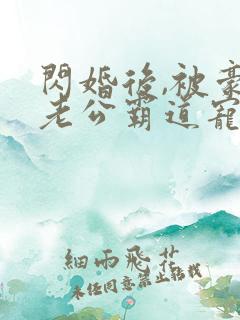 閃婚後,被豪
老公霸道寵
細雨飛花
未經同意禁止轉載